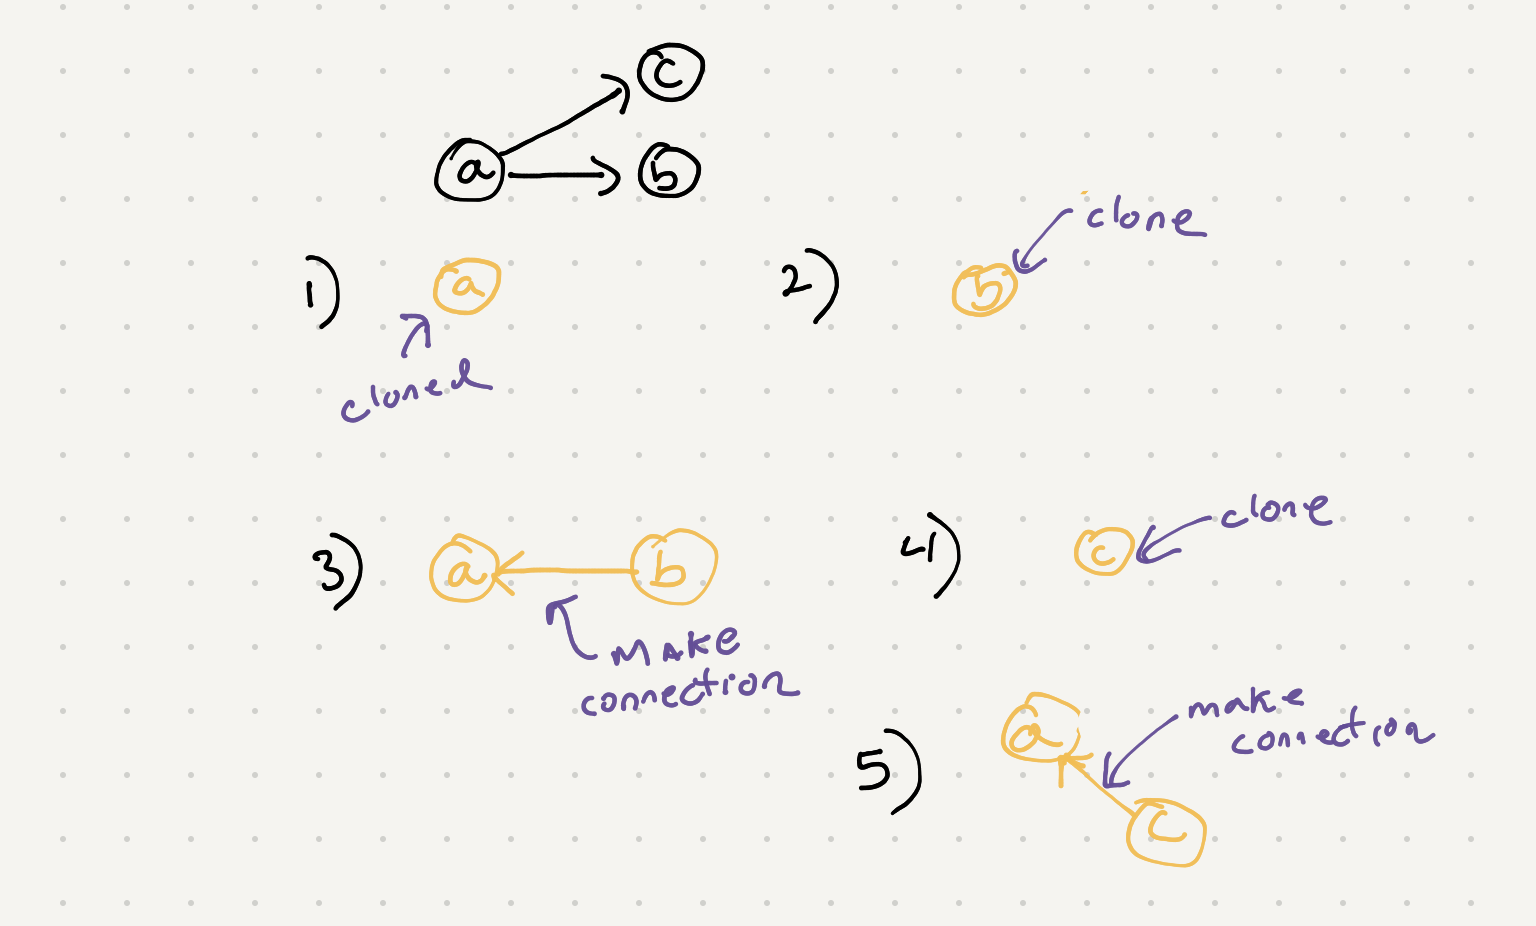 c
a
b
1)
a
cloned
2)
b
clone
3)
a
b
make
connection
4)
c
clone
5)
a
c
make
connection